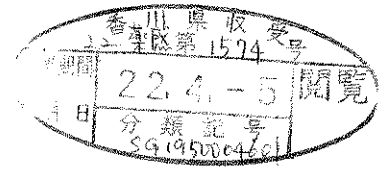 香川県収受
22薬感第1574号
期間
22.4.-5
閲覧
日
分類記号
SG1950004601